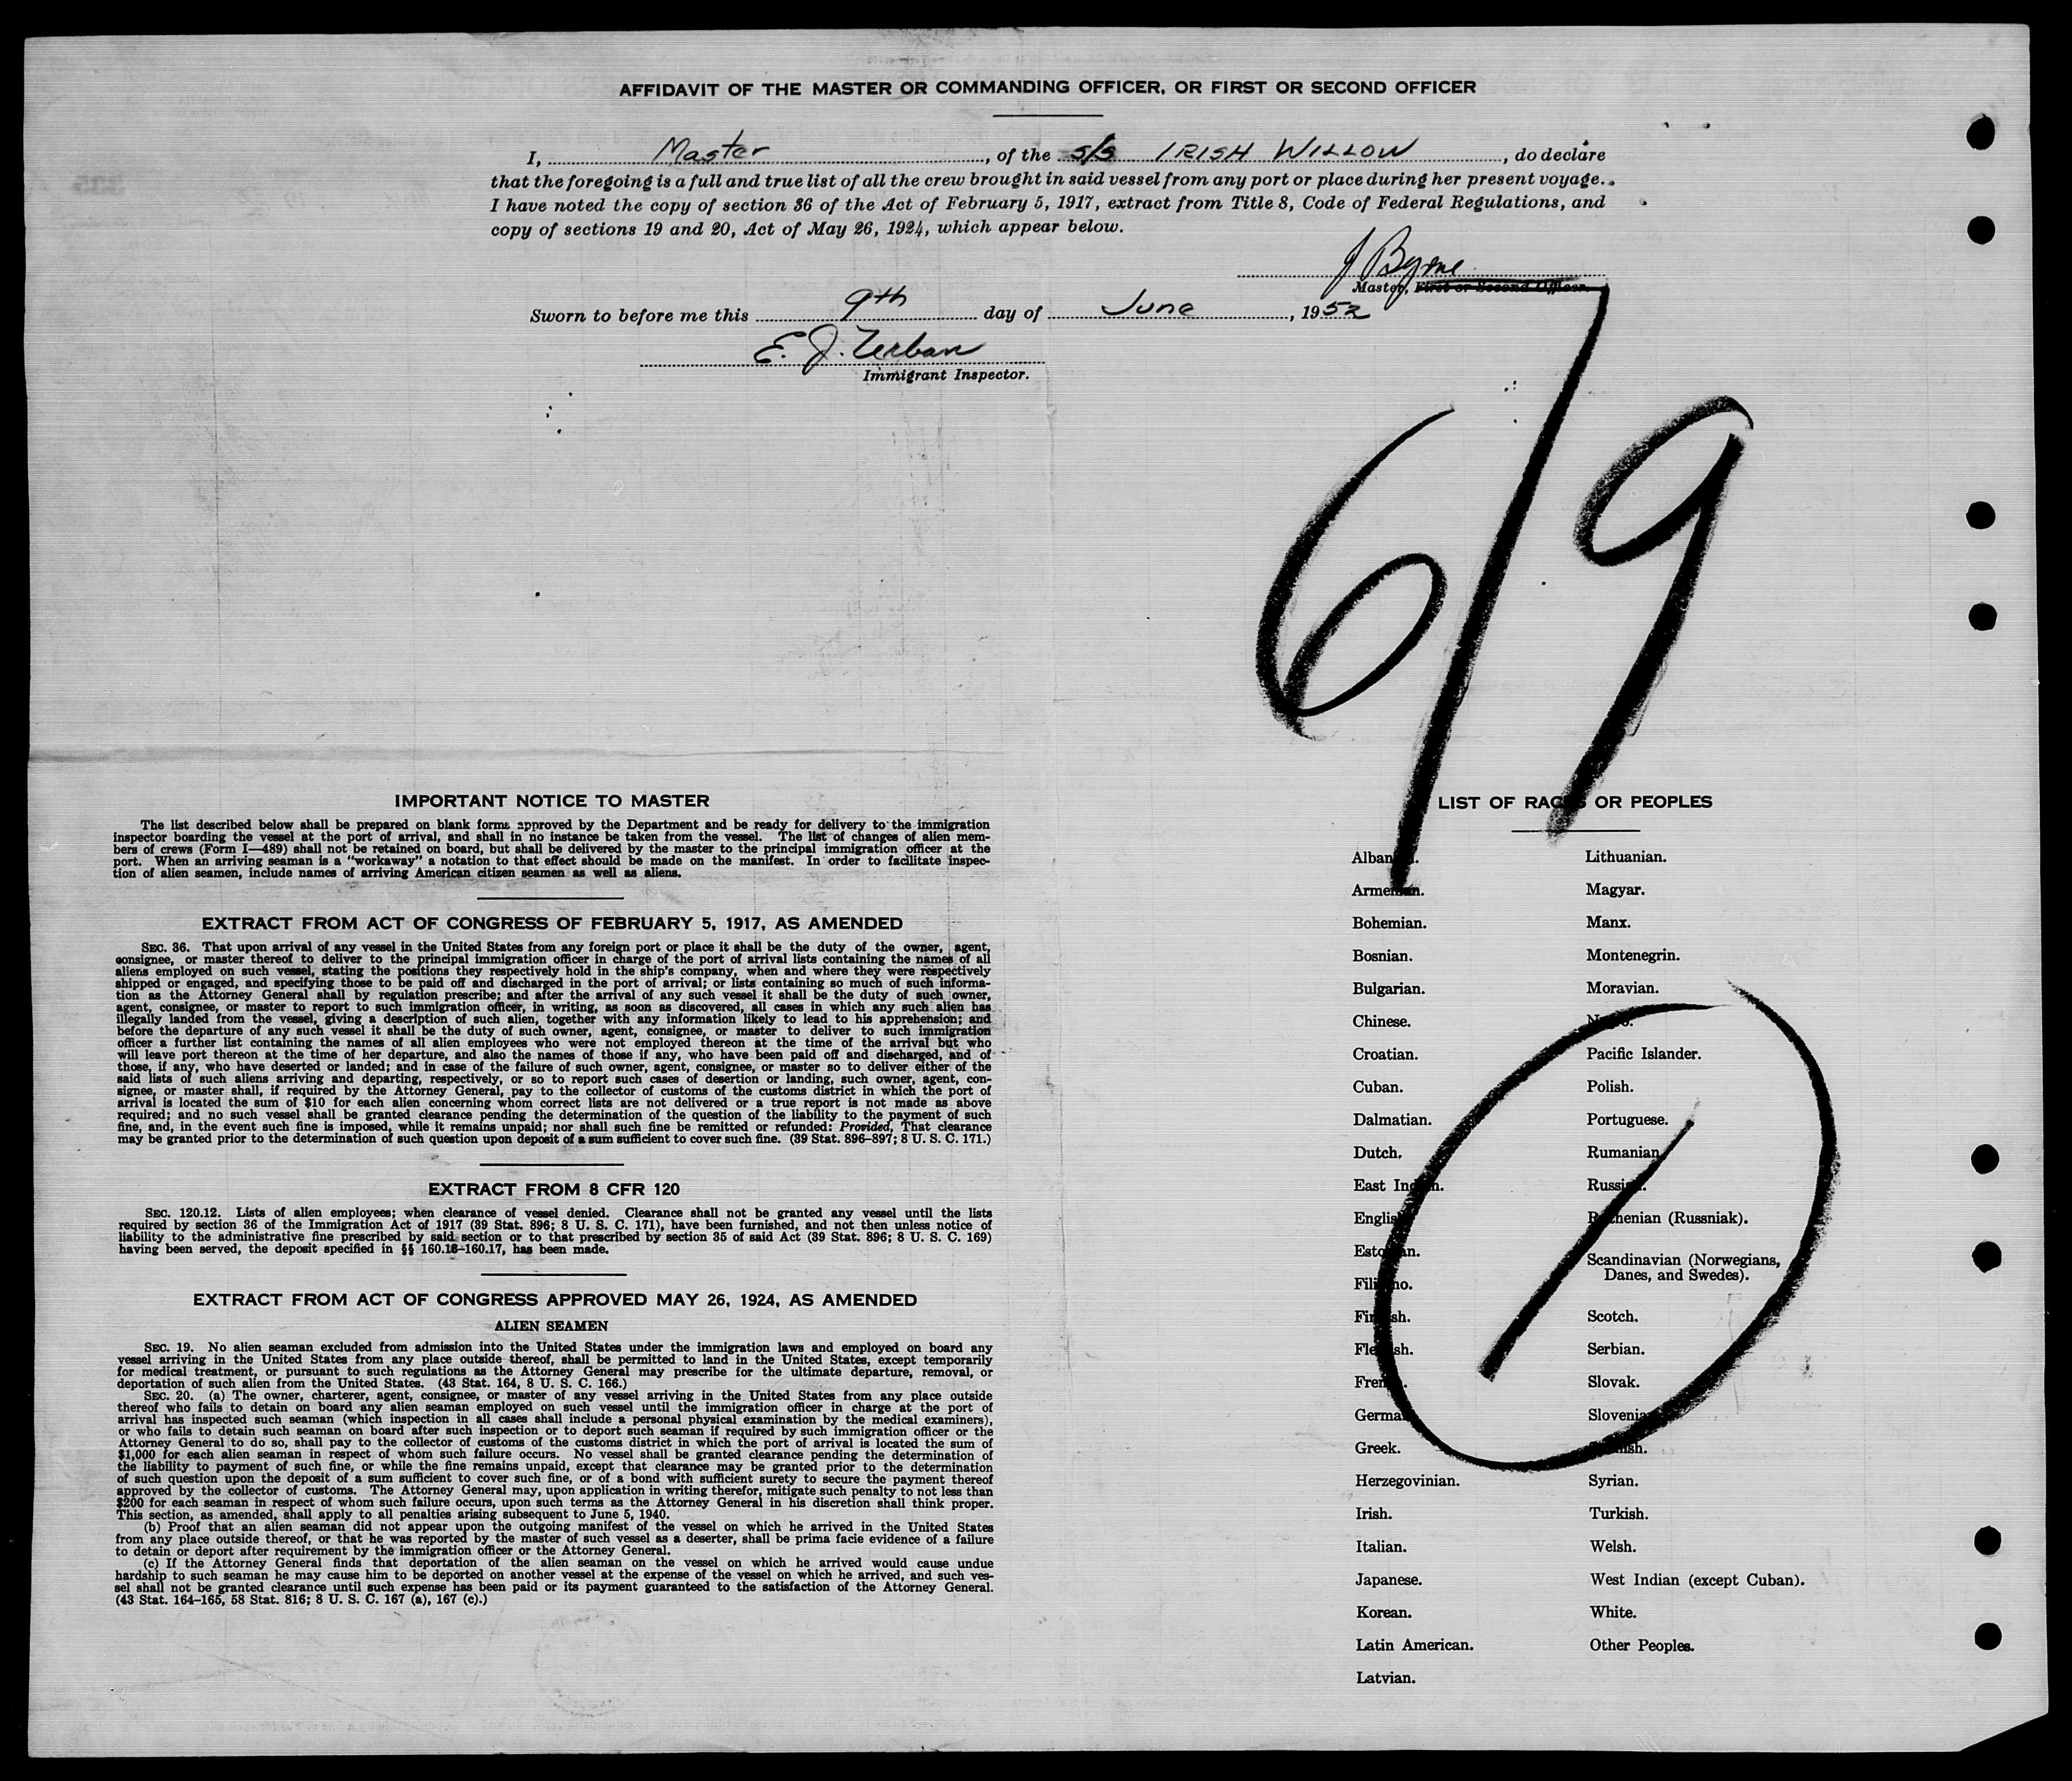 AFFIDAVIT OF THE MASTER OR COMMANDING OFFICER, OR FIRST OR SECOND OFFICER
I, Master, of the s/s IRISH WILLOW, do declare
that the foregoing is a full and true list of all the crew brought in said vessel from any port or place during her present voyage.
I have noted the copy of section 36 of the Act of February 5, 1917, extract from Title 8, Code of Federal Regulations, and
copy of sections 19 and 20, Act of May 26, 1924, which appear below.
J Byrne
Master, First or Second Officer.
Sworn to before me this 9th day of June, 1952
E. J. Urban
Immigrant Inspector.
6/9
IMPORTANT NOTICE TO MASTER
The list described below shall be prepared on blank forms approved by the Department and be ready for delivery to the immigration
inspector boarding the vessel at the port of arrival, and shall in no instance be taken from the vessel. The list of changes of alien mem-
bers of crews (Form I—489) shall not be retained on board, but shall be delivered by the master to the principal immigration officer at the
port. When an arriving seaman is a "workaway" a notation to that effect should be made on the manifest. In order to facilitate inspec-
tion of alien seamen, include names of arriving American citizen seamen as well as aliens.
EXTRACT FROM ACT OF CONGRESS OF FEBRUARY 5, 1917, AS AMENDED
SEC. 36. That upon arrival of any vessel in the United States from any foreign port or place it shall be the duty of the owner, agent,
consignee, or master thereof to deliver to the principal immigration officer in charge of the port of arrival lists containing the names of all
aliens employed on such vessel, stating the positions they respectively hold in the ship's company, when and where they were respectively
shipped or engaged, and specifying those to be paid off and discharged in the port of arrival; or lists containing so much of such informa-
tion as the Attorney General shall by regulation prescribe; and after the arrival of any such vessel it shall be the duty of such owner,
agent, consignee, or master to report to such immigration officer, in writing, as soon as discovered, all cases in which any such alien has
illegally landed from the vessel, giving a description of such alien, together with any information likely to lead to his apprehension; and
before the departure of any such vessel it shall be the duty of such owner, agent, consignee, or master to deliver to such immigration
officer a further list containing the names of all alien employees who were not employed thereon at the time of the arrival but who
will leave port thereon at the time of her departure, and also the names of those if any, who have been paid off and discharged, and of
those, if any, who have deserted or landed; and in case of the failure of such owner, agent, consignee, or master so to deliver either of the
said lists of such aliens arriving and departing, respectively, or so to report such cases of desertion or landing, such owner, agent, con-
signee, or master shall, if required by the Attorney General, pay to the collector of customs of the customs district in which the port of
arrival is located the sum of $10 for each alien concerning whom correct lists are not delivered or a true report is not made as above
required; and no such vessel shall be granted clearance pending the determination of the question of the liability to the payment of such
fine, and, in the event such fine is imposed, while it remains unpaid; nor shall such fine be remitted or refunded: Provided, That clearance
may be granted prior to the determination of such question upon deposit of a sum sufficient to cover such fine. (39 Stat. 896–897; 8 U. S. C. 171.)
EXTRACT FROM 8 CFR 120
SEC. 120.12. Lists of alien employees; when clearance of vessel denied. Clearance shall not be granted any vessel until the lists
required by section 36 of the Immigration Act of 1917 (39 Stat. 896; 8 U. S. C. 171), have been furnished, and not then unless notice of
liability to the administrative fine prescribed by said section or to that prescribed by section 35 of said Act (39 Stat. 896; 8 U. S. C. 169)
having been served, the deposit specified in §§ 160.18–160.17, has been made.
EXTRACT FROM ACT OF CONGRESS APPROVED MAY 26, 1924, AS AMENDED
ALIEN SEAMEN
SEC. 19. No alien seaman excluded from admission into the United States under the immigration laws and employed on board any
vessel arriving in the United States from any place outside thereof, shall be permitted to land in the United States, except temporarily
for medical treatment, or pursuant to such regulations as the Attorney General may prescribe for the ultimate departure, removal, or
deportation of such alien from the United States. (43 Stat. 164, 8 U. S. C. 166.)
SEC. 20. (a) The owner, charterer, agent, consignee, or master of any vessel arriving in the United States from any place outside
thereof who fails to detain on board any alien seaman employed on such vessel until the immigration officer in charge at the port of
arrival has inspected such seaman (which inspection in all cases shall include a personal physical examination by the medical examiners),
or who fails to detain such seaman on board after such inspection or to deport such seaman if required by such immigration officer or the
Attorney General to do so, shall pay to the collector of customs of the customs district in which the port of arrival is located the sum of
$1,000 for each alien seaman in respect of whom such failure occurs. No vessel shall be granted clearance pending the determination of
the liability to payment of such fine, or while the fine remains unpaid, except that clearance may be granted prior to the determination
of such question upon the deposit of a sum sufficient to cover such fine, or of a bond with sufficient surety to secure the payment thereof
approved by the collector of customs. The Attorney General may, upon application in writing therefor, mitigate such penalty to not less than
$200 for each seaman in respect of whom such failure occurs, upon such terms as the Attorney General in his discretion shall think proper.
This section, as amended, shall apply to all penalties arising subsequent to June 5, 1940.
(b) Proof that an alien seaman did not appear upon the outgoing manifest of the vessel on which he arrived in the United States
from any place outside thereof, or that he was reported by the master of such vessel as a deserter, shall be prima facie evidence of a failure
to detain or deport after requirement by the immigration officer or the Attorney General.
(c) If the Attorney General finds that deportation of the alien seaman on the vessel on which he arrived would cause undue
hardship to such seaman he may cause him to be deported on another vessel at the expense of the vessel on which he arrived, and such ves-
sel shall not be granted clearance until such expense has been paid or its payment guaranteed to the satisfaction of the Attorney General.
(43 Stat. 164–165, 58 Stat. 816; 8 U. S. C. 167 (a), 167 (c).)
LIST OF RACES OR PEOPLES
Albanian.
Armenian.
Bohemian.
Bosnian.
Bulgarian.
Chinese.
Croatian.
Cuban.
Dalmatian.
Dutch.
East Indian.
English.
Estonian.
Filipino.
Finnish.
Flemish.
French.
German.
Greek.
Herzegovinian.
Irish.
Italian.
Japanese.
Korean.
Latin American.
Latvian.
Lithuanian.
Magyar.
Manx.
Montenegrin.
Moravian.
Negro.
Pacific Islander.
Polish.
Portuguese.
Rumanian.
Russian.
Ruthenian (Russniak).
Scandinavian (Norwegians,
Danes, and Swedes).
Scotch.
Serbian.
Slovak.
Slovenian.
Spanish.
Syrian.
Turkish.
Welsh.
West Indian (except Cuban).
White.
Other Peoples.
1